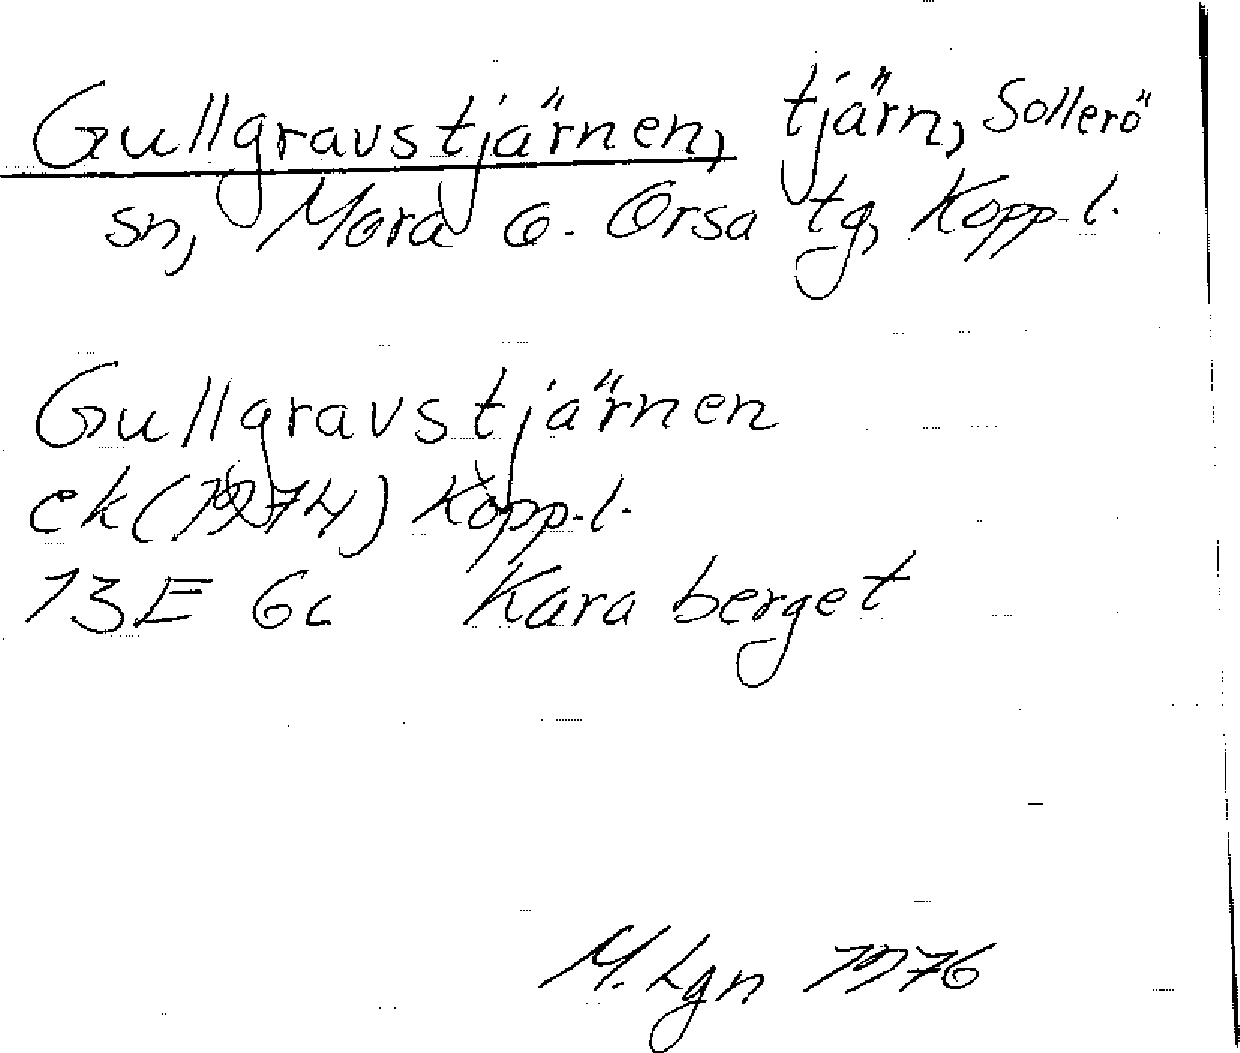 Gullgravstjärnen, tjärn, Sollerö
sn, Mora o. Orsa tg, Kopp.l.
Gullgravstjärnen
ek (1974) Kopp.l.
13E 6c Karaberget
M. Lgn 1976